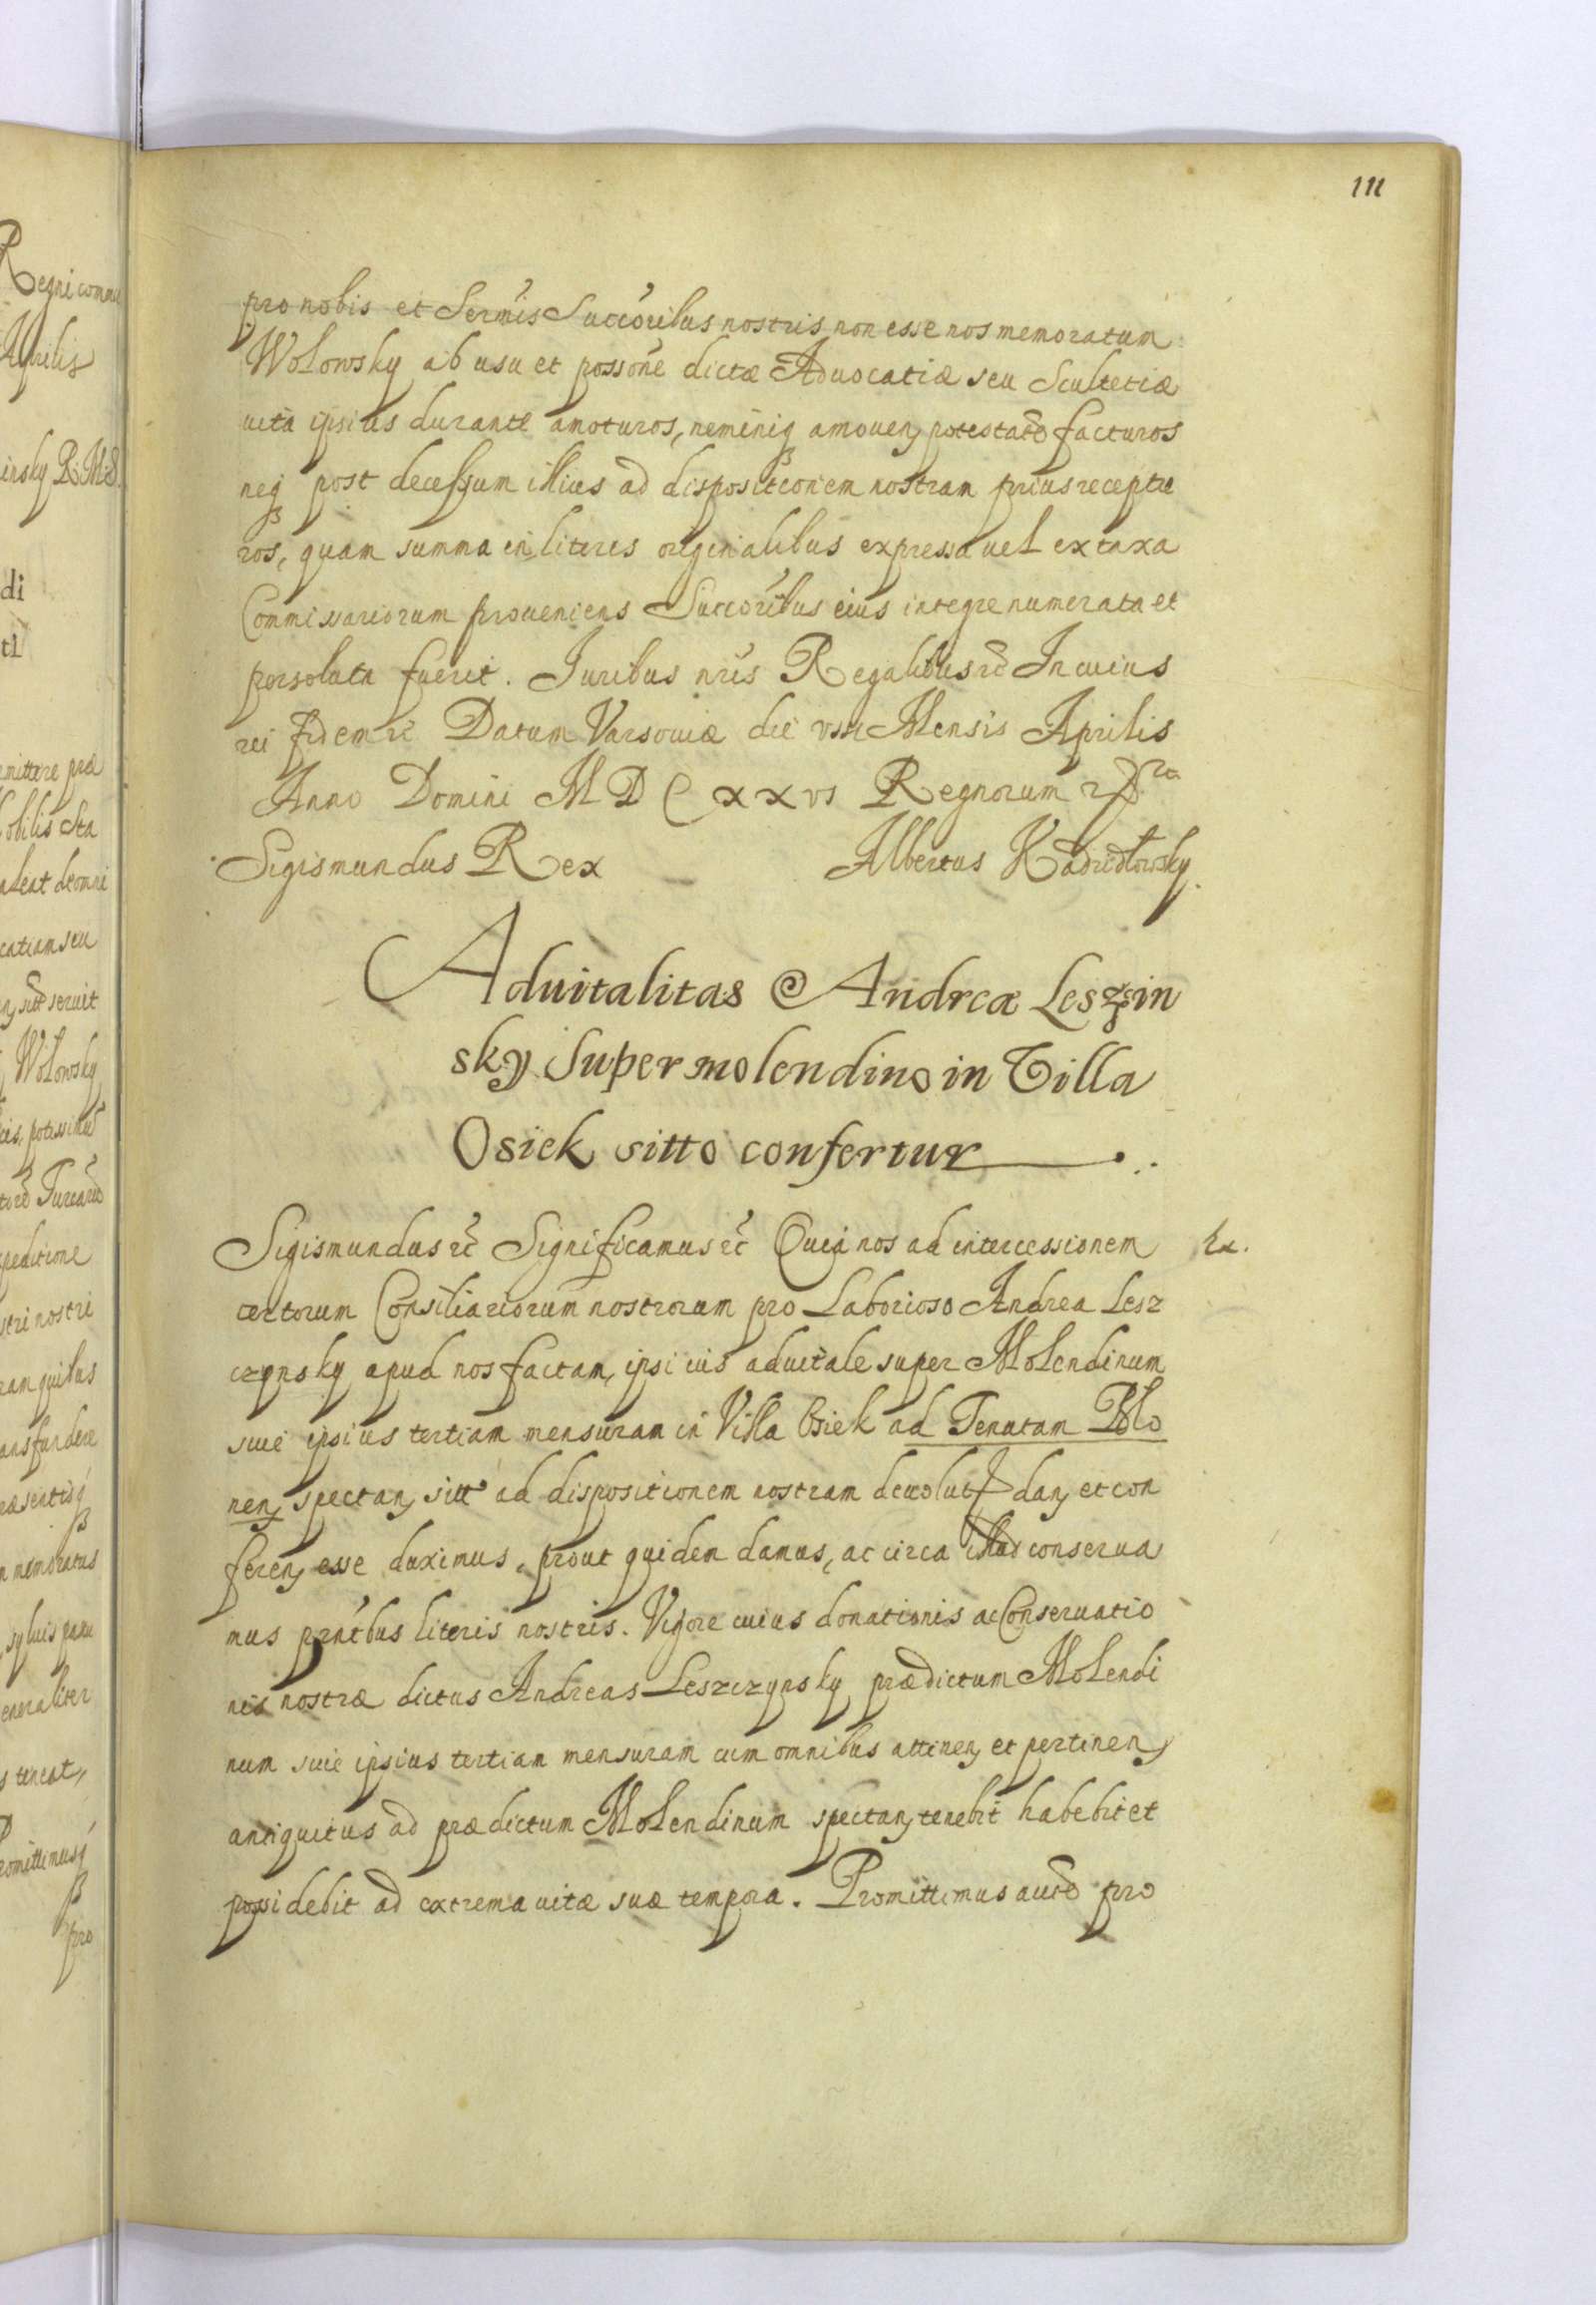 111
pro nobis et Sermis Succoribus nostris non esse nos memoratum
Wolowsky ab usu et possone dictæ Aduocatiæ seu Scultetiæ
uita ipsius durante amoturos, neminiq amouen potestatē facturos
neq post decessum illius ad dispositionem nostram prius receptu
ros, quam summa in literis originalibus expressa uel ex taxa
Commissariorum proueniens Succoribus eius integre numerata et
persoluta fuerit. Juribus nris Regalibus etc In cuius
rei fidem etc Datum Varsouiæ die VIII Mensis Aprilis
Anno Domini MDCXXVI Regnorum
Sigismundus Rex Albertus Kadzidłowsky
Aduitalitas Andreæ Leszczin
sky Super molendino in Villa
Osiek sitto confertur
Sigismundus etc Significamus etc Quia nos ad intercessionem
certorum Consiliariorum nostrorum pro Laborioso Andrea Lesz
czynsky apud nos factam, ipsi ius aduitale super Molendinum
siue ipsius tertiam mensuram in Villa Osiek ad Tenutam Blo
nen spectan sitt ad dispositionem nostram deuolut dan et con
feren esse duximus, prout quidem damus, ac circa illud conserua
mus prntibus literis nostris. Vigore cuius donationis ac Conseruatio
nis nostræ dictus Andreas Leszczynsky prædictum Molendi
num siue ipsius tertiam mensuram cum omnibus attinen et pertinen
antiquitus ad prædictum Molendinum spectan tenebit habebit et
possidebit ad extrema uitæ suæ tempora. Promittimus autē pro